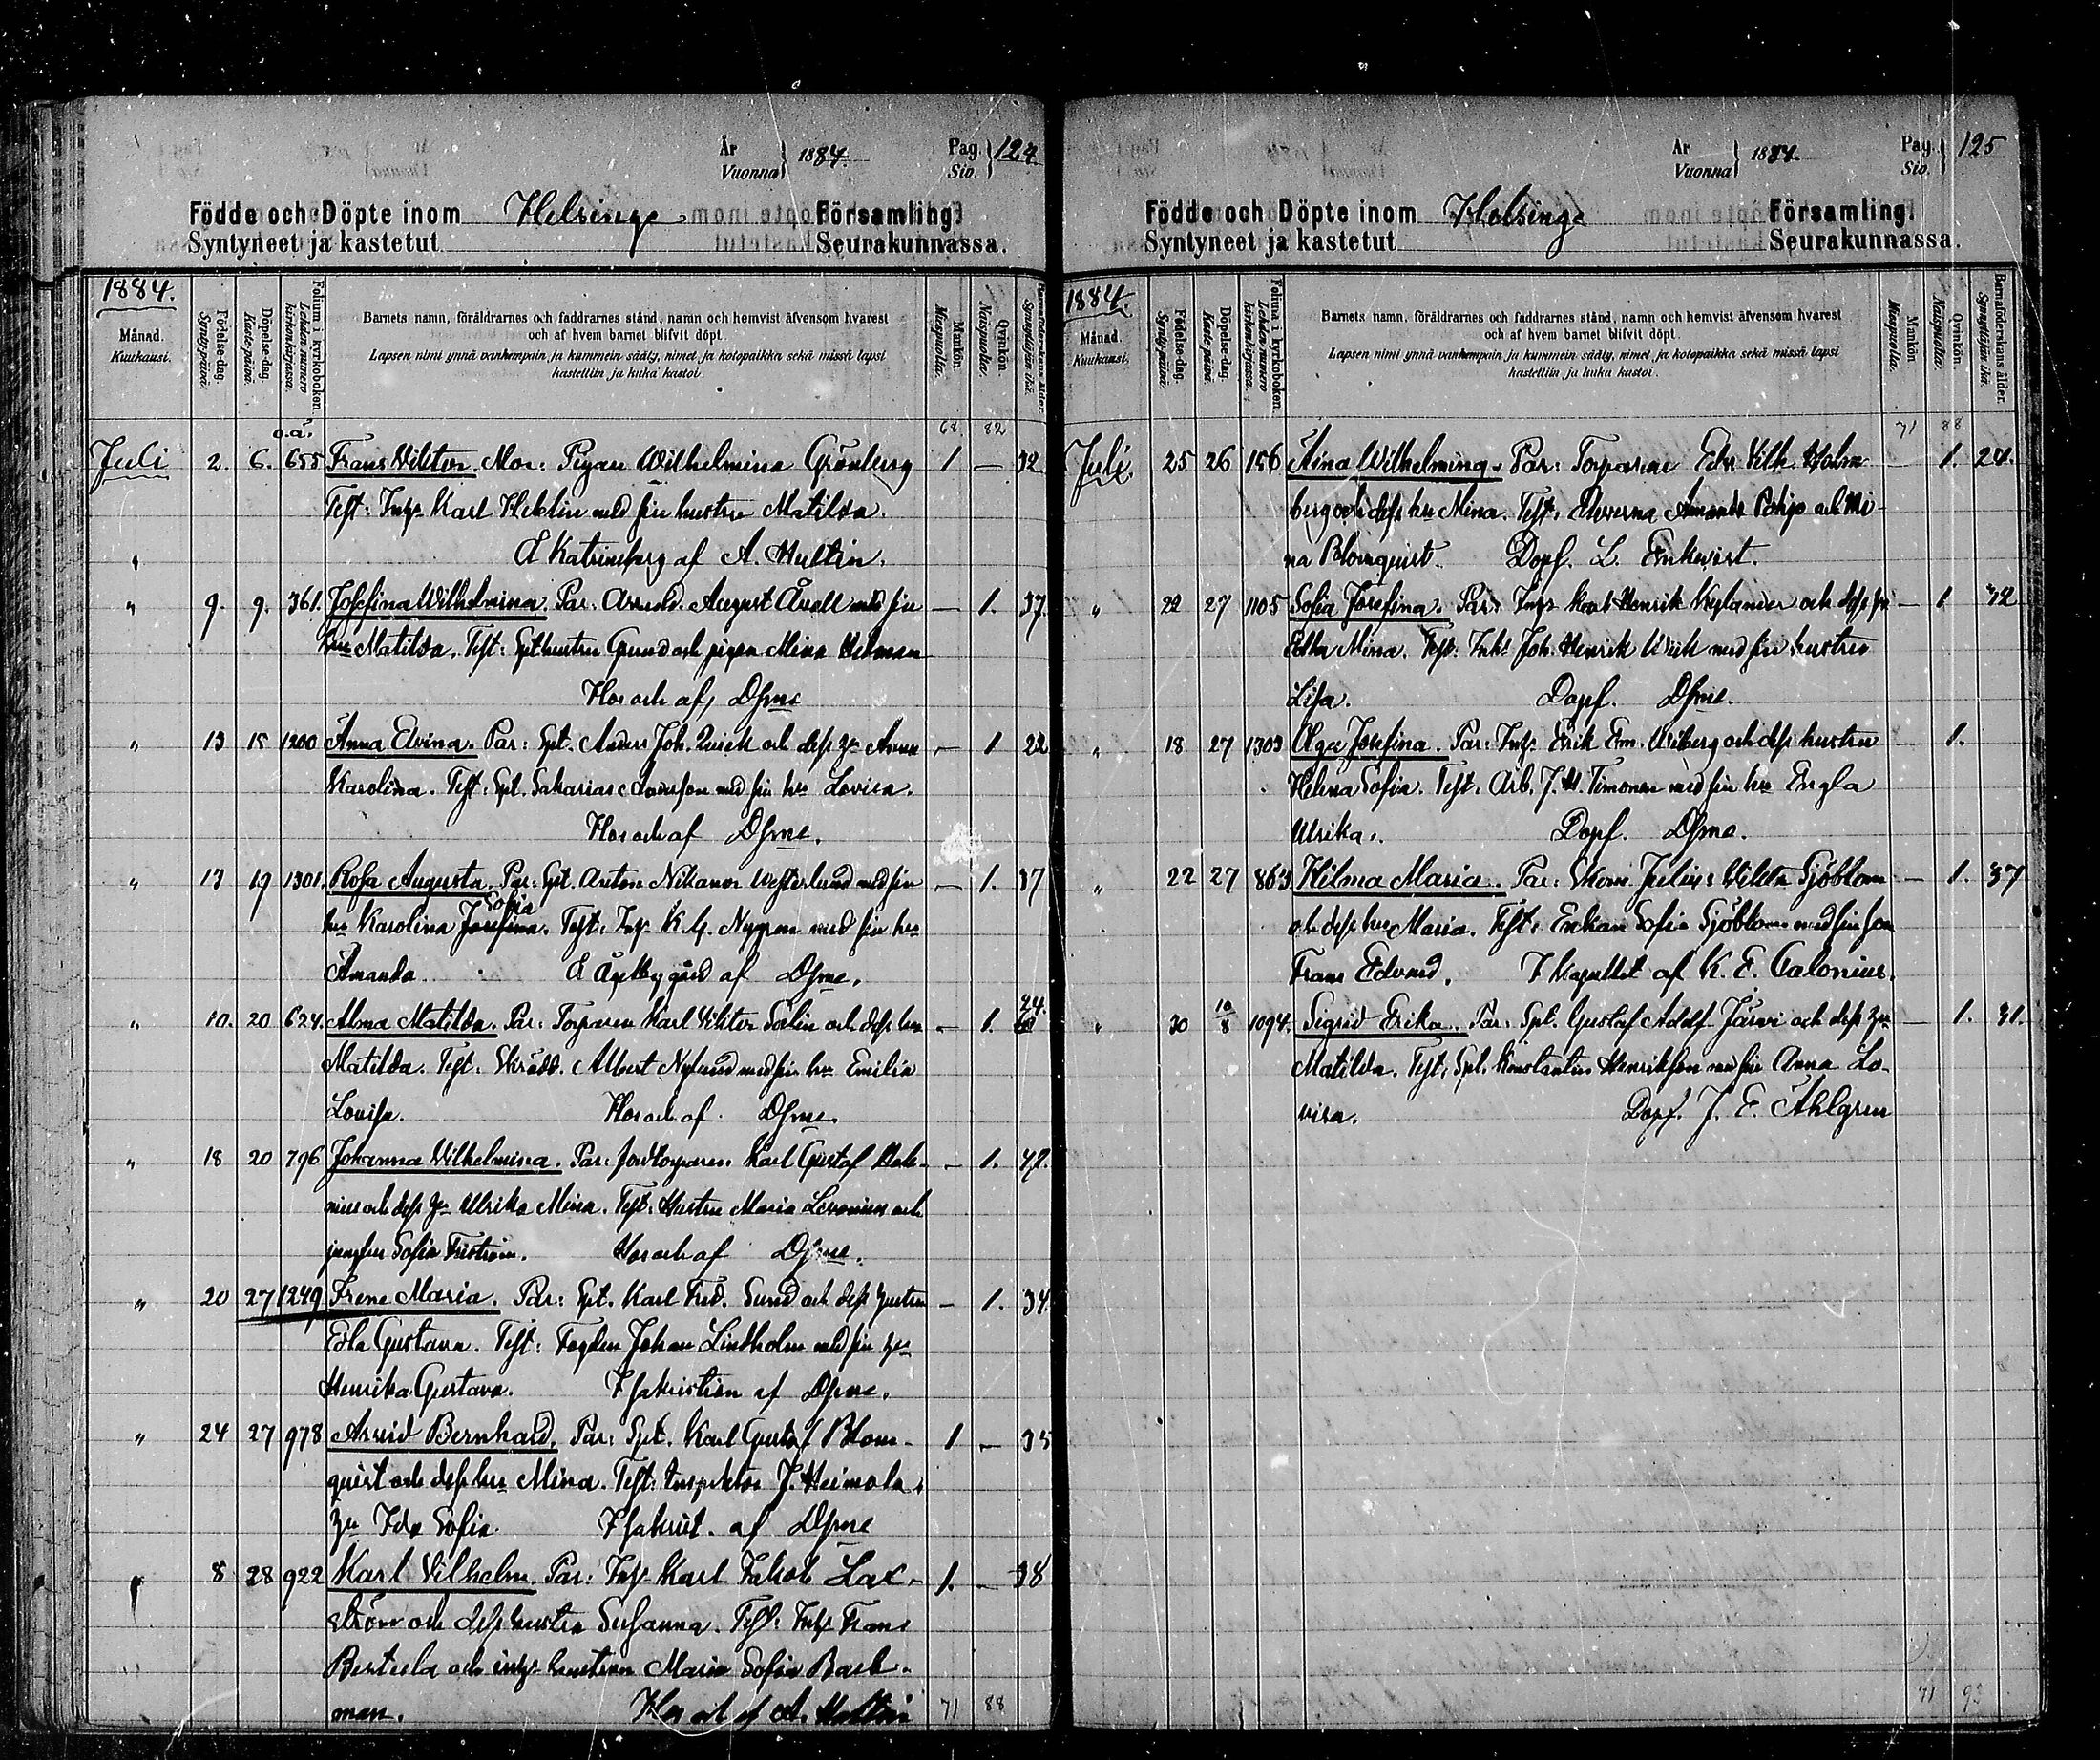 År
Vuonna } 1884.
Pag. } 124
Siv.
Födde och Döpte inom Helsinge Församling.
Syntyneet ja kastetut Seurakunnassa.
1884.
Månad.
Kuukausi.
Födelse-dag.
Syntypäivä.
Döpelse-dag.
Kaste-päivä.
Folium i kyrkoboken.
Lehden numero kirkonkirjassa.
Barnets namn, föräldrarnes och faddrarnes stånd, namn och hemvist äfvensom hvarest
och af hvem barnet blifvit döpt.
Lapsen nimi ynnä vanhempain ja kummein sääty, nimet ja kotopaikka sekä missä lapsi
kastettiin ja kuka kastoi.
Mankön.
Miespuolia.
Qvinkön.
Naispuolia.
Barnaföderskans ålder.
Synnyttäjän ikä.
68. 82
o.ä.
Juli 2. 6. 655 Frans Viktor. Mor: Pigan Wilhelmina Grönberg 1 — 32
Test: Inhs Karl Heklin med sin hustru Matilda.
Å Katrineberg af A. Hultin.
" 9. 9. 361. Josefina Wilhelmina. Par: August Åvall med sin — 1. 37.
hru Matilda. Test: Spt hustru Grund och pigan Mina Helman
Hos och af Dsme
" 13 15 1200 Anna Elvina. Par: Spt. Anders Joh. Quick och dess hru Anna — 1 22
Karolina. Test: Spt. Sakarias med sin hru Lovisa.
Hos och af Dsme.
" 13 19 1301. Rosa Augusta. Par: Spt. Anton Nikanor Westerlund med sin — 1. 37
Sofia
hru Karolina Josefina. Test: Inhs K. G. Nygren med sin hru
Amanda. Å gård af Dsme.
" 10. 20 624. Alma Matilda. Par: Torparen Karl Viktor Solin och dess hru — 1. 24.
Matilda. Test: Skrädd. Albert Nylund med sin hru Emilia
Lovisa. Hos och af Dsme.
" 18 20 796 Johanna Vilhelmina. Par: Jordtorparen Karl Gustaf — 1. 42.
och dess hru Ulrika Mina. Test: Hustru Maria och
jungfru Sofia. Hos och af Dsme.
" 20 27 1249 Irene Maria. Par: Spt. Karl Fred. Sund och dess hustru — 1. 34.
Edla Gustava. Test: Fogden Johan Lindholm med sin hru
Henrika Gustava. I sakristian af Dsme.
" 24 27 978 Arvid Bernhard. Par: Spt. Karl Gustaf Blom- 1 — 35
quist och dess hru Mina. Test: Inspektor J. Heimola,
hru Ida Sofia. I sakrist. af Dsme
" 8 28 922 Karl Vilhelm. Par: Inhs Karl Jakob Lax- 1. — 38
ström och dess hustru Susanna. Test: Inhs Frans
Bertula och inhs hustrun Maria Sofia Back-
man. Hos och af A. Hultin 71 88
År
Vuonna } 1884.
Pag. } 125
Siv.
Födde och Döpte inom Helsinge Församling.
Syntyneet ja kastetut Seurakunnassa.
1884.
Månad.
Kuukausi.
Födelse-dag.
Syntypäivä.
Döpelse-dag.
Kaste-päivä.
Folium i kyrkoboken.
Lehden numero kirkonkirjassa.
Barnets namn, föräldrarnes och faddrarnes stånd, namn och hemvist äfvensom hvarest
och af hvem barnet blifvit döpt.
Lapsen nimi ynnä vanhempain ja kummein sääty, nimet ja kotopaikka sekä missä lapsi
kastettiin ja kuka kastoi.
Mankön.
Miespuolia.
Qvinkön.
Naispuolia.
Barnaföderskans ålder.
Synnyttäjän ikä.
71 88
Juli. 25 26 156 Aina Wilhelmina. Par: Torparen Edv. Vilh. Holm- — 1. 24.
berg och dess hru Mina. Test: Amanda Pohjo och Mi-
na Blomquist. Döpf. L. Enkvist.
" 22 27 1105 Sofia Josefina. Par: Inhs Karl Henrik Kylander och dess hru — 1 32
Edla Mina. Test: Inhs Joh. Henrik Wiik med sin hustru
Lisa. Döpf. Dsme.
" 18 27 1303 Olga Josefina. Par: Inhs Erik Em. Wiberg och dess hustru — 1.
Helena Sofia. Test: Arb. J. H. Timonen med sin hru Engla
Ulrika. Döpf. Dsme.
" 22 27 863 Hilma Maria. Par: Skom. Julius Viktor Sjöblom — 1. 37
och dess hru Maria. Test: Enkan Sofia Sjöblom med sin son
Frans Edvard. I kapellet af K. E. Calonius.
" 30 10/8 1094. Sigrid Erika. Par: Spt. Gustaf Adolf Järvi och dess hru — 1. 31.
Matilda. Test: Spt. Konstantin Henriksson med sin Anna Lo-
visa. Döpf. J. E. Åhlgren
71 93